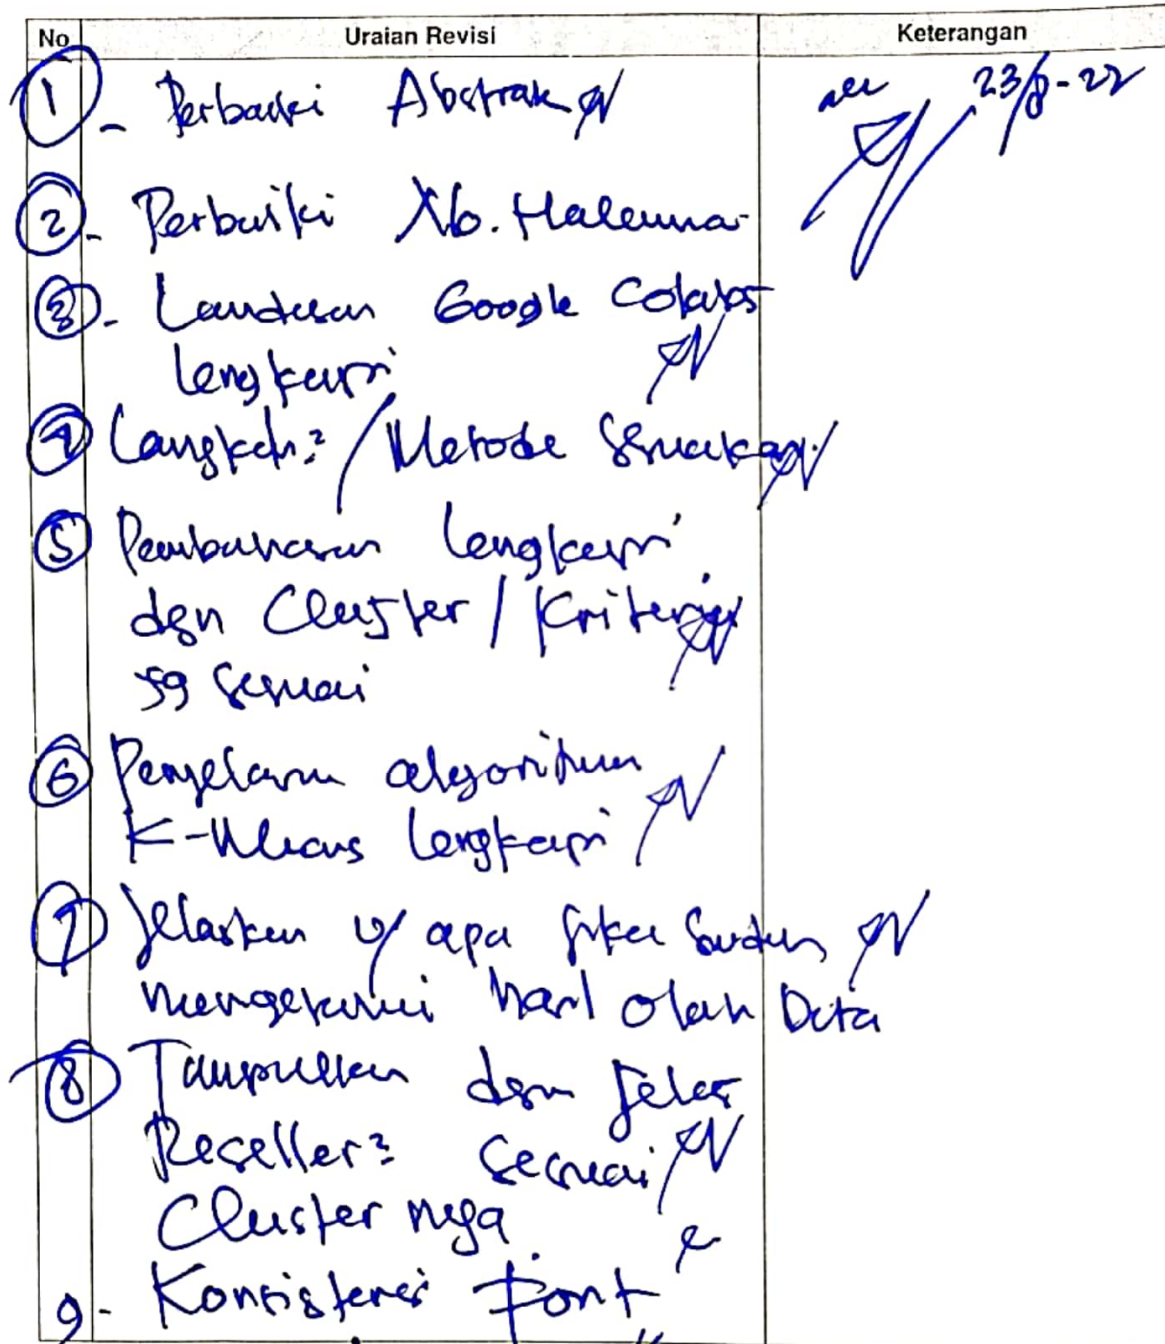 No Uraian Revisi Keterangan
1 - Perbaiki Abstrak acc 23/8-22
2 - Perbaiki No. Halaman
3 - Landasan Google Colabs
lengkapi
4 Langkah2 / Metode Sesuaikan
5 Pembahasan lengkapi
dgn Cluster / Kriteria
yg sesuai
6 Penjelasan algoritma
K-Means lengkapi
7 Jelaskan u/ apa jika sudah
mengetahui hasil olah Data
8 Tampilkan dgn jelas
Reseller2 sesuai
Cluster nya
9 - Konsistensi Font